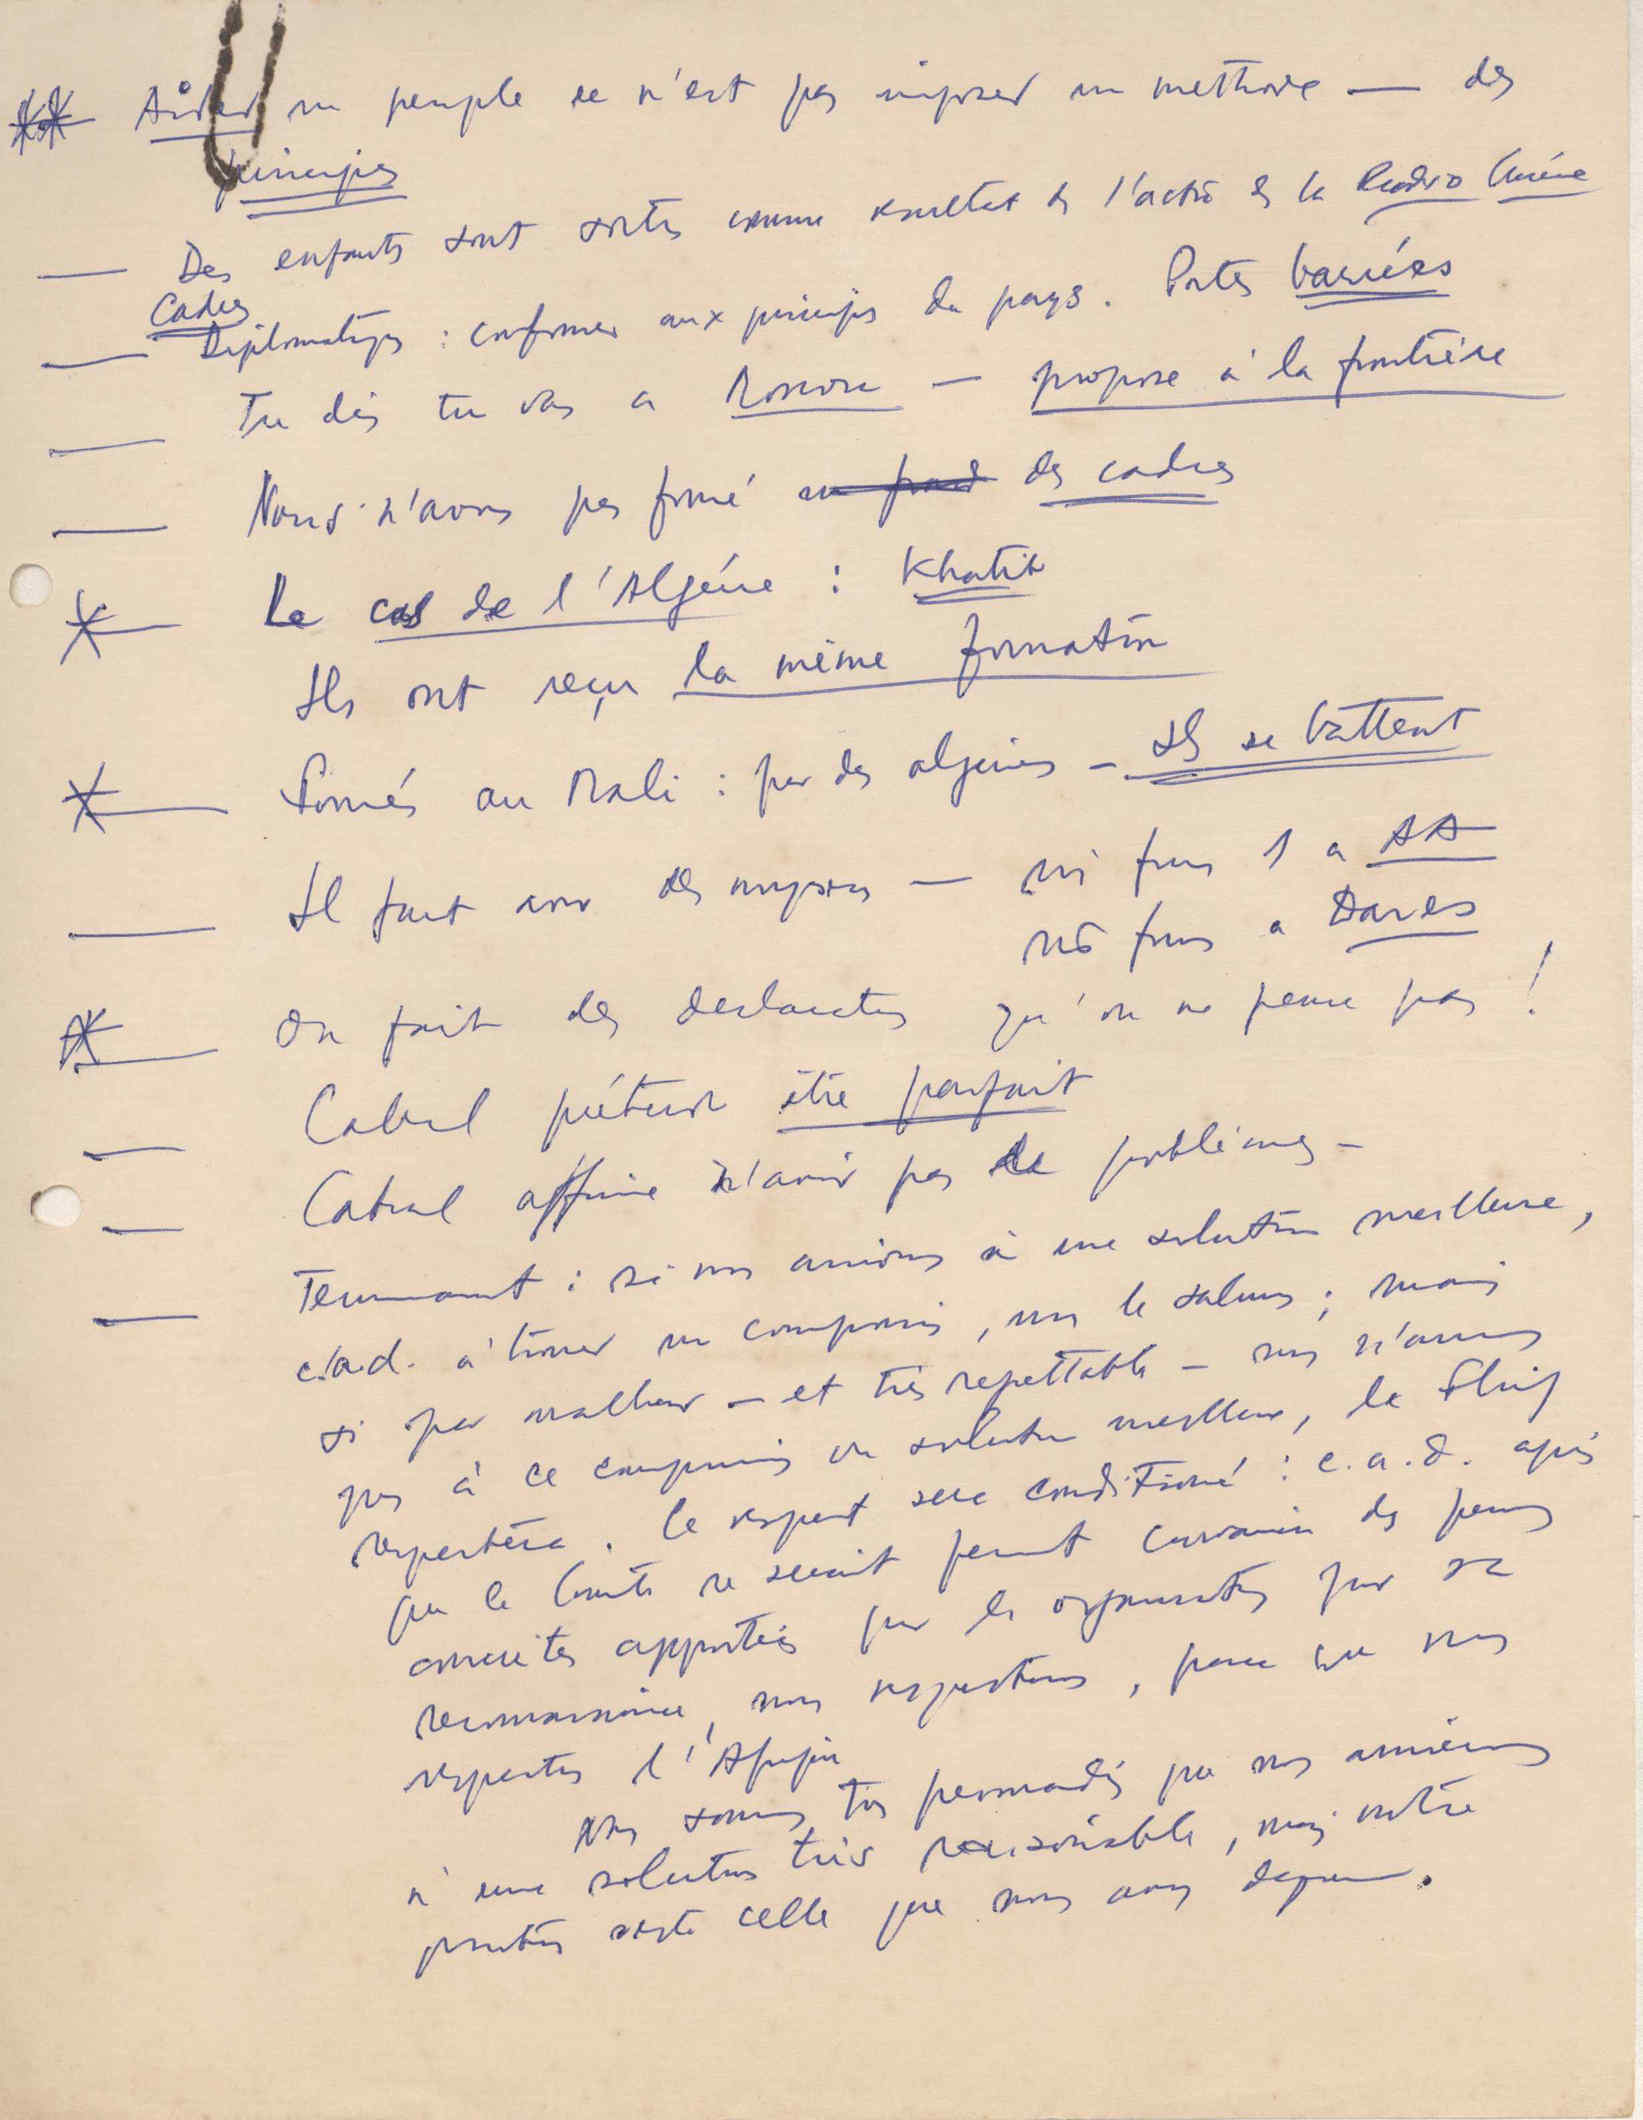 Aider un peuple ce n'est pas imposer un methode — des
principes
— Des enfants sont sortis comme resultat de l'actio de la Radio Guinée
Cadres
— Diplomatiqs : conformer aux principes du pays. Portes barrées
— Tu dis tu vas a Moscou — propose à la frontière
— Nous n'avons pas formé des cadres
Le cas de l'Algérie : Khatib
Ils ont reçu la même formation
Formés au Mali : par des algeriens — Ils se battent
— Il faut avoir des — ns fumes 1 a AA
ns fumes a Dar es
On fait des declarations qu'on ne pense pas !
— Cabral prétend être parfait
— Cabral affirme n'avoir pas de problèmes —
— Terminant : si nous arrivons à une solution meilleure,
c.a.d. à trouver un compromis, nous le saluons ; mais
si par malheur — et très regrettable — nous n'arrivons
pas à ce compromis ou solution meilleure, le Fling
respectera. Ce respect sera conditionné : c.a.d. après
que le Comité se serait convaincu des preuves
concrètes apportées par les organisations pour sa
reconnaissance, nous respectons, parce que nous
respectons l'Afrique
Nous sommes tous persuadés que nous arriverons
à une solution très raisonable, mais notre
position reste celle que nous avons